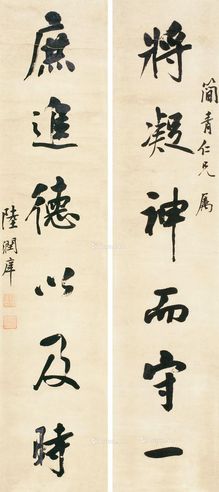 簡青仁兄属
將凝神而守一
庶進德以及時
陸潤庠